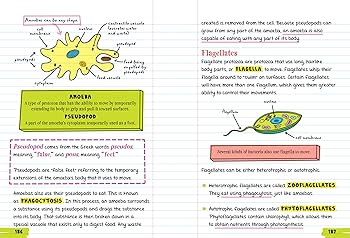 Amoebas can be any shape.
nucleus
contractile vacuole
(stores water and
waste)
pseudopod
pseudopods
food being
engulfed by
pseudopods
cytoplasm
cell membrane
AMOEBA
A type of protozoa that has the ability to move by temporarily
extending its body to grip and pull it toward surfaces.
PSEUDOPOD
A part of the amoeba's cytoplasm temporarily used as a foot.
Pseudopod comes from the Greek words pseudos,
meaning "false," and pous, meaning "feet."
Pseudopods are "false feet" referring to the temporary
extensions of the amoeba's body that it uses to move.
Amoebas also use their pseudopods to eat. This is known
as PHAGOCYTOSIS. In this process, an amoeba surrounds
a substance using its pseudopods and dumps the substance
into its body. That substance is then broken down in a
special vacuole that exists only to digest food. Any waste
186
created is removed from the cell. Because pseudopods can
grow from any part of the amoeba, an amoeba is also
capable of eating with any part of its body.
Flagellates
Flagellate protozoa are protozoa that use long, hairlike
body parts, or FLAGELLA, to move. Flagellates whip their
flagella around to "swim" on surfaces. Certain flagellates
will have more than one flagellum, which gives them greater
ability to control their movements.
nucleus
flagellum
cell membrane
Several kinds of bacteria also use flagella to move.
Flagellates can be either heterotrophic or autotrophic.
Heterotrophic flagellates are called ZOOFLAGELLATES.
They eat using phagocytosis, just like amoebas.
Autotrophic flagellates are called PHYTOFLAGELLATES.
Phytoflagellates contain chlorophyll, which allows them
to obtain nutrients through photosynthesis.
187